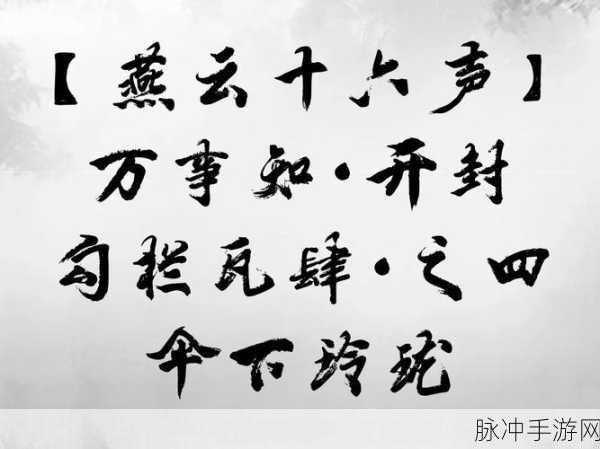 【燕云十六声】
万事知·开封
勾栏瓦肆·之四
伞下玲珑
脉冲手游网